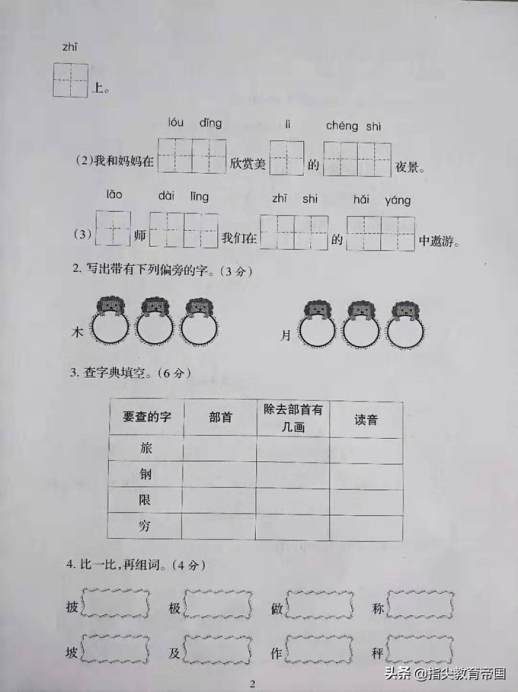 zhī
上。
lóu dǐng lì chéng shì
(2)我和妈妈在 欣赏美 的 夜景。
lǎo dài lǐng zhī shi hǎi yáng
(3) 师 我们在 的 中遨游。
2. 写出带有下列偏旁的字。(3分)
木 月
3. 查字典填空。(6分)
要查的字 部首 除去部首有几画 读音
旅
钢
限
穷
4. 比一比,再组词。(4分)
披 极 做 称
坡 及 作 秤
2
头条 @指尖教育帝国